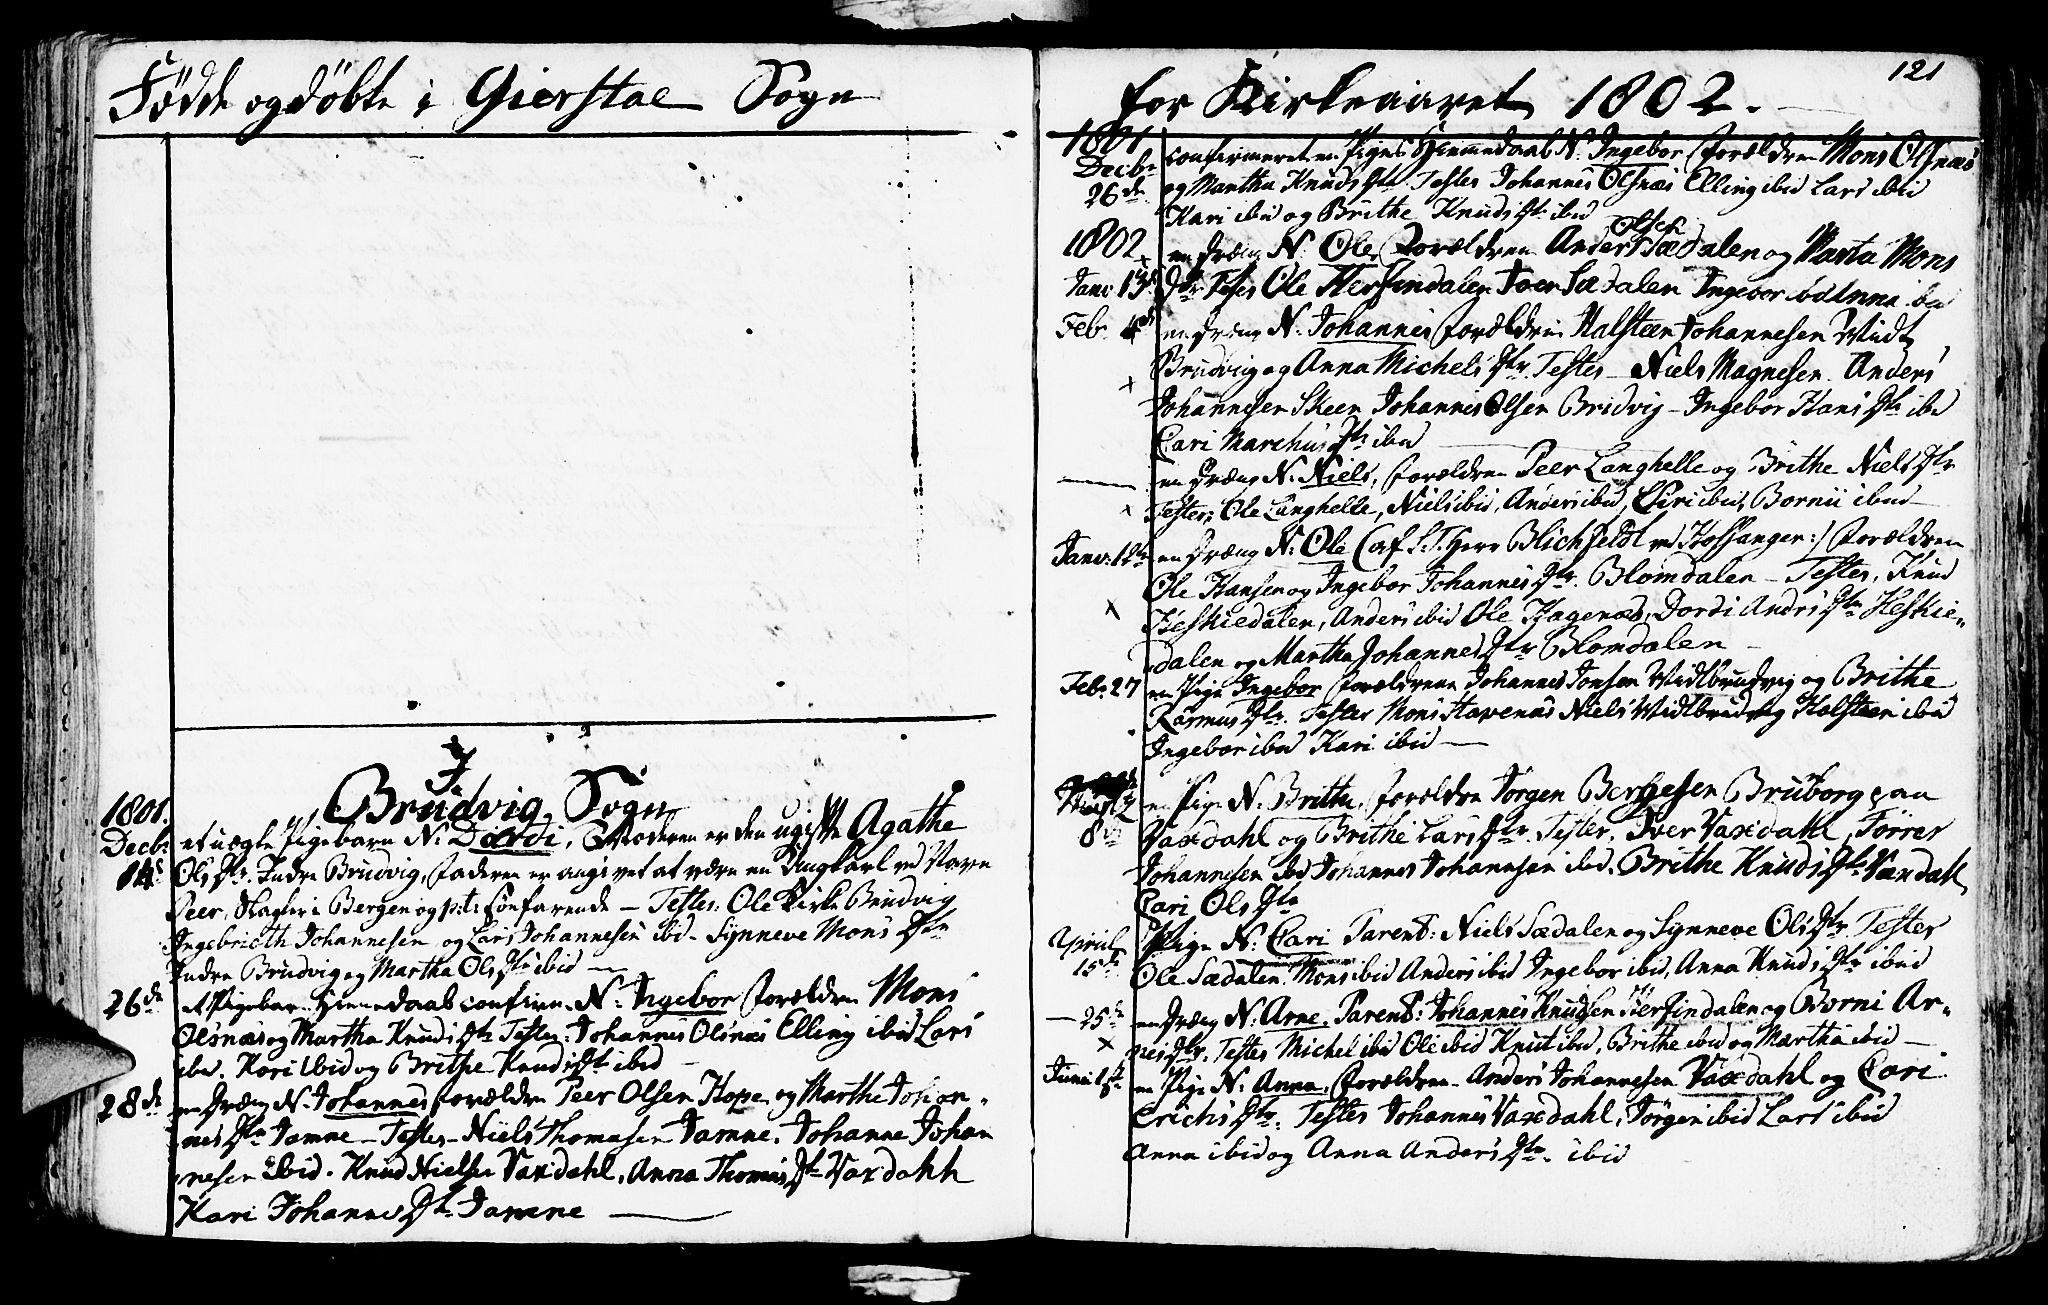 Födde og döbte i Gierstae Sogn
I
Brudvig Sogn
1801.
Decbr 14de et uægte Pigebarn N. Dordi, Moderen er den ugifte Agathe
Ols Dtr. Indre Brudvig, faderen er angivet at være en Ungkarl ved Navn
Peer, Slagter i Bergen og p:t: fonfarende — Testes: Ole Kirke Brudvig
Ingebricth Johannesen og Lars Johannesen ibd. Synneve Mons Dtr
Indre Brudvig og Martha Ols Dtr ibid —
26de et Pigebarn Hiemmedaab confirm. N: Ingebor forældre Mons
Olsnæs og Martha Knuds Dtr Testes: Johannes Olsnæs Elling ibid Lars
ibid. Kari ibid og Brithe Knuds Dtr ibid —
28de en Dræng N. Johannes forældre Peer Olsen Hope og Marthe Johan-
nes Dtr Jamne — Testes — Niels Thomasen Jamne. Johanne Johan
nesen ibid. Knud Nielsen Vaxdahl, Anna Thomas Dtr Vaxdahl
Kari Johannes Dtr Jamne —
for Kirkeaaret 1802.
121
1801
Decbr 26de confirmeret en Piges Hiemmedaab N. Ingebor forældre Mons Olsnæs
og Martha Knuds Dtr Testes Johannes Olsnæs Elling ibid Lars ibid
Kari ibid og Brithe Knuds Dtr ibid
1802
en Dræng N. Ole forældrene Anders Olsen Sædalen og Marta Mons
Janv 13de Dtr Testes Ole Herfindalen Iver Sædalen Ingebor ibd Anna ibd
Febr. en Dræng N. Johannes forældre Halsteen Johannesen Vidt
Brudvig og Anna Michels Dtr. Testes — Niels Magnesen. Anders
x Johannesen Skeen Johannes Olsen Bridvig — Ingebor Hans Dtr ibd
Cari Marchus Dtr ibid
— en Dræng N. Niels, forældrene Peer Langhelle og Brithe Niels Dtr
x Testes: Ole Langhelle, Niels ibid, Anders ibid, Siri ibid, Bornii ibid —
Janv: en Dræng N: Ole (af S.T. Herr Blichfeldt ved Hossanger:) forældrene
Ole Hansen og Ingebor Johannes Dtr. Blomdalen — Testes, Knud
x Heskiedalen, Anders ibid Ole Hagenæs, Dordi Anders Dtr Heskie-
dalen og Martha Johannes Dtr Blomdalen —
Febr. 27 en Pige Ingebor forældrene Johannes Jonsen Vidtbrudvig og Brithe
Rasmus Dtr. Testes Mons Stavenæs Niels Vidtbrudvig Halsteen ibid
Ingebor ibid Kari ibid —
8de en Pige N. Brithe, forældre Jørgen Bergesen Bruborg paa
Vaxdahl og Brithe Lars Dtr. Testes. Iver Vaxdahl, Torrer
Johannesen ibd Johannes Johannesen ibd. Brithe Knuds Dtr Vaxdahl,
Cari Ols Dtr
April 15de Pige N. Cari Parent: Niels Sædalen og Synneve Ols Dtr Testes
Ole Sædalen. Mons ibid Anders ibid Ingebor ibid, Anna Knuds Dtr ibid
— 25de en Dræng N. Arne. Parent: Johannes Knudsen Herfindalen og Borni Ar-
x nes Dtr, Testes Michel ibid Ole ibid Knut ibd, Brithe ibid og Martha ibid —
Junii en Pige N. Anna, forældre — Anders Johannesen Vaxdahl og Cari
Erichs Dtr. Testes Johannes Vaxdahl, Jørgen ibid Lars ibid
Anna ibid og Anna Anders Dtr. ibid